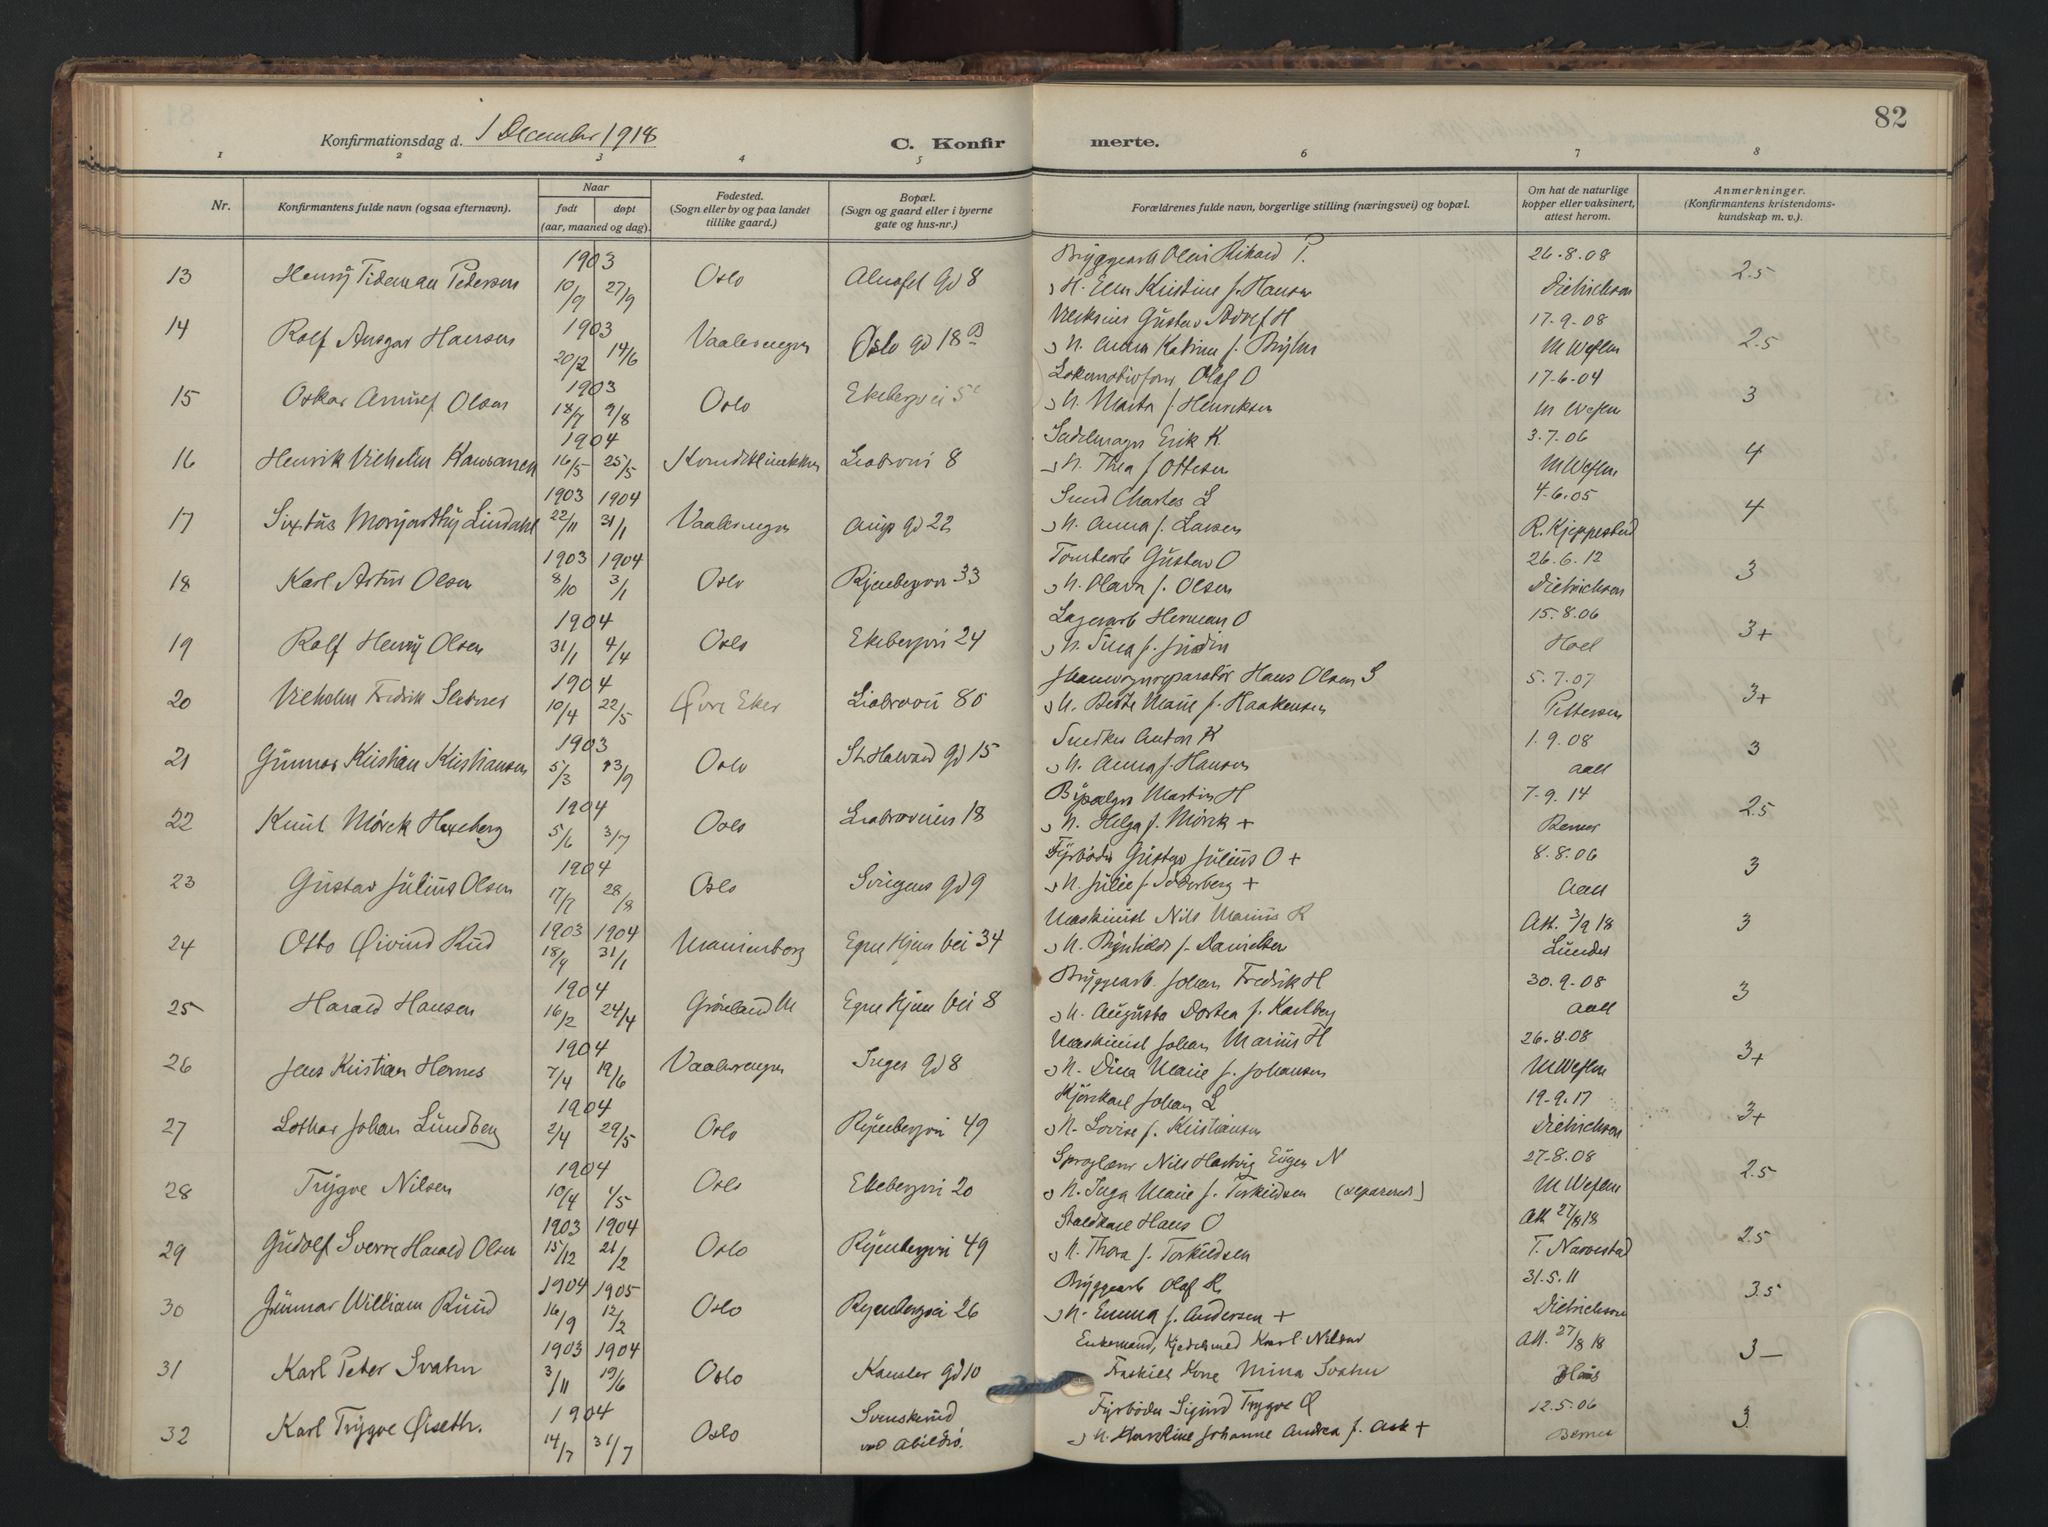 82
Konfirmationsdag d. 1 December 1918
C. Konfirmerte.
1 2 3 4 5 6 7 8
Nr.
Konfirmantens fulde navn (ogsaa efternavn).
Naar
født døpt
(aar, maaned og dag).
Fødested.
(Sogn eller by og paa landet
tillike gaard.)
Bopæl.
(Sogn og gaard eller i byerne
gate og hus-nr.)
Forældrenes fulde navn, borgerlige stilling (næringsvei) og bopæl.
Om hat de naturlige
kopper eller vaksinert,
attest herom.
Anmerkninger.
(Konfirmantens kristendoms-
kundskap m. v.).
1903 Bryggearb Olai Rikard P. 26.8.08
13 Henry Tideman Pedersen 10/9 27/9 Oslo gd 8 H. Elen Kristine f. Hansen Dietrichson 2.5
1903 Gustav Adolf H 17.9.08
14 Rolf Ansgar Hansen 20/2 14/6 Vaalerengen Oslo gd 18B H. Anna Katrine f. M Weflen 2.5
1903 Olaf O 17.6.04
15 Oskar Olsen 18/7 9/8 Oslo Ekebergvei H. Marta f. Henriksen M Weflen 3
1904 Sadelmager Erik K. 3.7.06
16 Henrik Vilhelm 16/5 25/5 Liabrovei 8 H. Thea f Ottesen M Weflen 4
1903 1904 Smed Charles L 4.6.05
17 Sixtus Lindahl 22/11 31/1 Vaalerengen gd 22 H. Anna f. Larsen R. Kjeppestad 4
1903 1904 Tomtearb Gustav O 26.6.12
18 Karl Artur Olsen 8/10 3/1 Oslo Ryenbergvei 33 H. Olava f. Olsen Dietrichson 3
1904 Lagerarb Herman O 15.8.06
19 Rolf Henry Olsen 31/1 4/4 Oslo Ekebergvei 24 H. Hoel 3+
1904 Hans Olsen S 5.7.07
20 Vilhelm Fredrik 10/4 22/5 Øvre Eker Liabrovei 80 H. Marie f. Haakensen Pettersen 3+
1903 Snedker Anton K 1.9.08
21 Gunnar Kristian Kristiansen 5/3 13/9 Oslo St. Halvard gd 15 H. Anna f. Hansen Aall 3
1904 Martin H 7.9.14
22 Knut Mörck Haxeberg 5/6 3/7 Oslo Liabroveien 18 H. Helga f. Mörck + Berner 2.5
1904 Fyrbøder Gustav Julius O + 8.8.06
23 Gustav Julius Olsen 17/7 28/8 Oslo Sveigens gd 9 H. Julie f. Söderberg + Aall 3
1903 1904 Maskinist Nils Marius R Att. 3/9 18
24 Otto Øivind Rud 18/9 31/1 Marienborg Egne Hjem vei 34 H. Brynhilda f. Danielsen Lunder 3
1904 Bryggearb Johan Fredrik H 30.9.08
25 Harald Hansen 16/2 24/4 Grønland M Egne Hjem vei 8 H. Augusta Dortea f. Karlberg Aall 3
1904 Maskinist Johan Marius H 26.8.08
26 Jens Kristian Hernes 7/4 19/6 Vaalerengen Inges gd 8 H. Dina Marie f. Johansen M Weflen 3+
1904 Kjørekarl Johan L 19.9.17
27 Lothar Johan Lundberg 2/4 29/5 Oslo Ryenbergvei 49 H. Lovise f. Kristiansen Dietrichson 3+
1904 Nils Hartvig Eugen N 27.8.08
28 Trygve Nilsen 10/4 1/5 Oslo Ekebergvei 20 H. Inga Marie f. Torkildsen (separeret) M Weflen 2.5
1903 1904 Staldkarl Hans O Att 27/8 18
29 Gudolf Sverre Harald Olsen 15/12 21/2 Oslo Ryenbergvei 49 H. Thora f. Torkildsen T. Narvestad 2.5
1904 1905 Bryggearb Olaf R. 31.5.11
30 Gunnar William Ruud 16/9 12/2 Oslo Ryenbergvei 26 H. Emma f. Andersen + Dietrichson 3.5
1903 1904 Enkemand, Kjedelsmed Karl Nilsen Att. 27/8 18
31 Karl Peter Svahn 3/11 19/6 Oslo Kansler gd 10 Fraskilt Kone Mina Svahn 3 –
1904 Svenskerud Fyrbøder Sigurd Trygve Ø 12.5.06
32 Karl Trygve Øiseth. 14/7 31/7 Oslo ved Abildsø. H. Johanne Andrea f. Ask + Berner 3